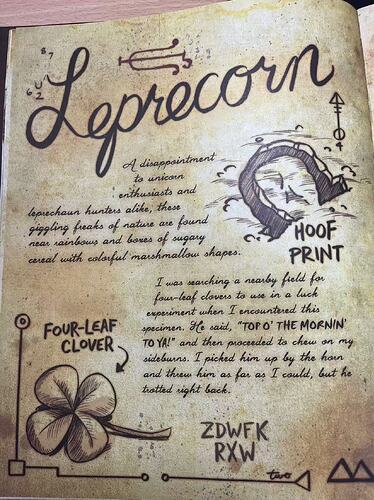 Leprecorn
A disappointment
to unicorn
enthusiasts and
leprechaun hunters alike, these
giggling freaks of nature are found
near rainbows and boxes of sugary
cereal with colorful marshmallow shapes.
HOOF
PRINT
I was searching a nearby field for
four-leaf clovers to use in a luck
experiment when I encountered this
specimen. He said, "TOP O' THE MORNIN'
TO YA!" and then proceeded to chew on my
sideburns. I picked him up by the horn
and threw him as far as I could, but he
trotted right back.
FOUR-LEAF
CLOVER
ZDWFK
RXW
two